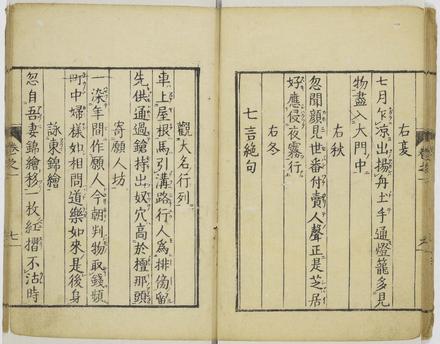 右夏
七月乍凉出揚舟土手通燈籠多見
物盡入大門中
右秋
忽聞顔見世番付賣人聲正是芝居
好應侵夜霧行
右冬
七言絶句
觀大名行列
車上屋根馬引溝路行人爲排徊留
先供通過鎗持出奴穴高於擅那頭
寄願人坊
一染年間作願人人今朝判物取錢頻
町中婦樣如相問道樂如來是後身
詠東錦繪
忽自吾妻錦繪移一枚紅摺不沽時
卷之一
七